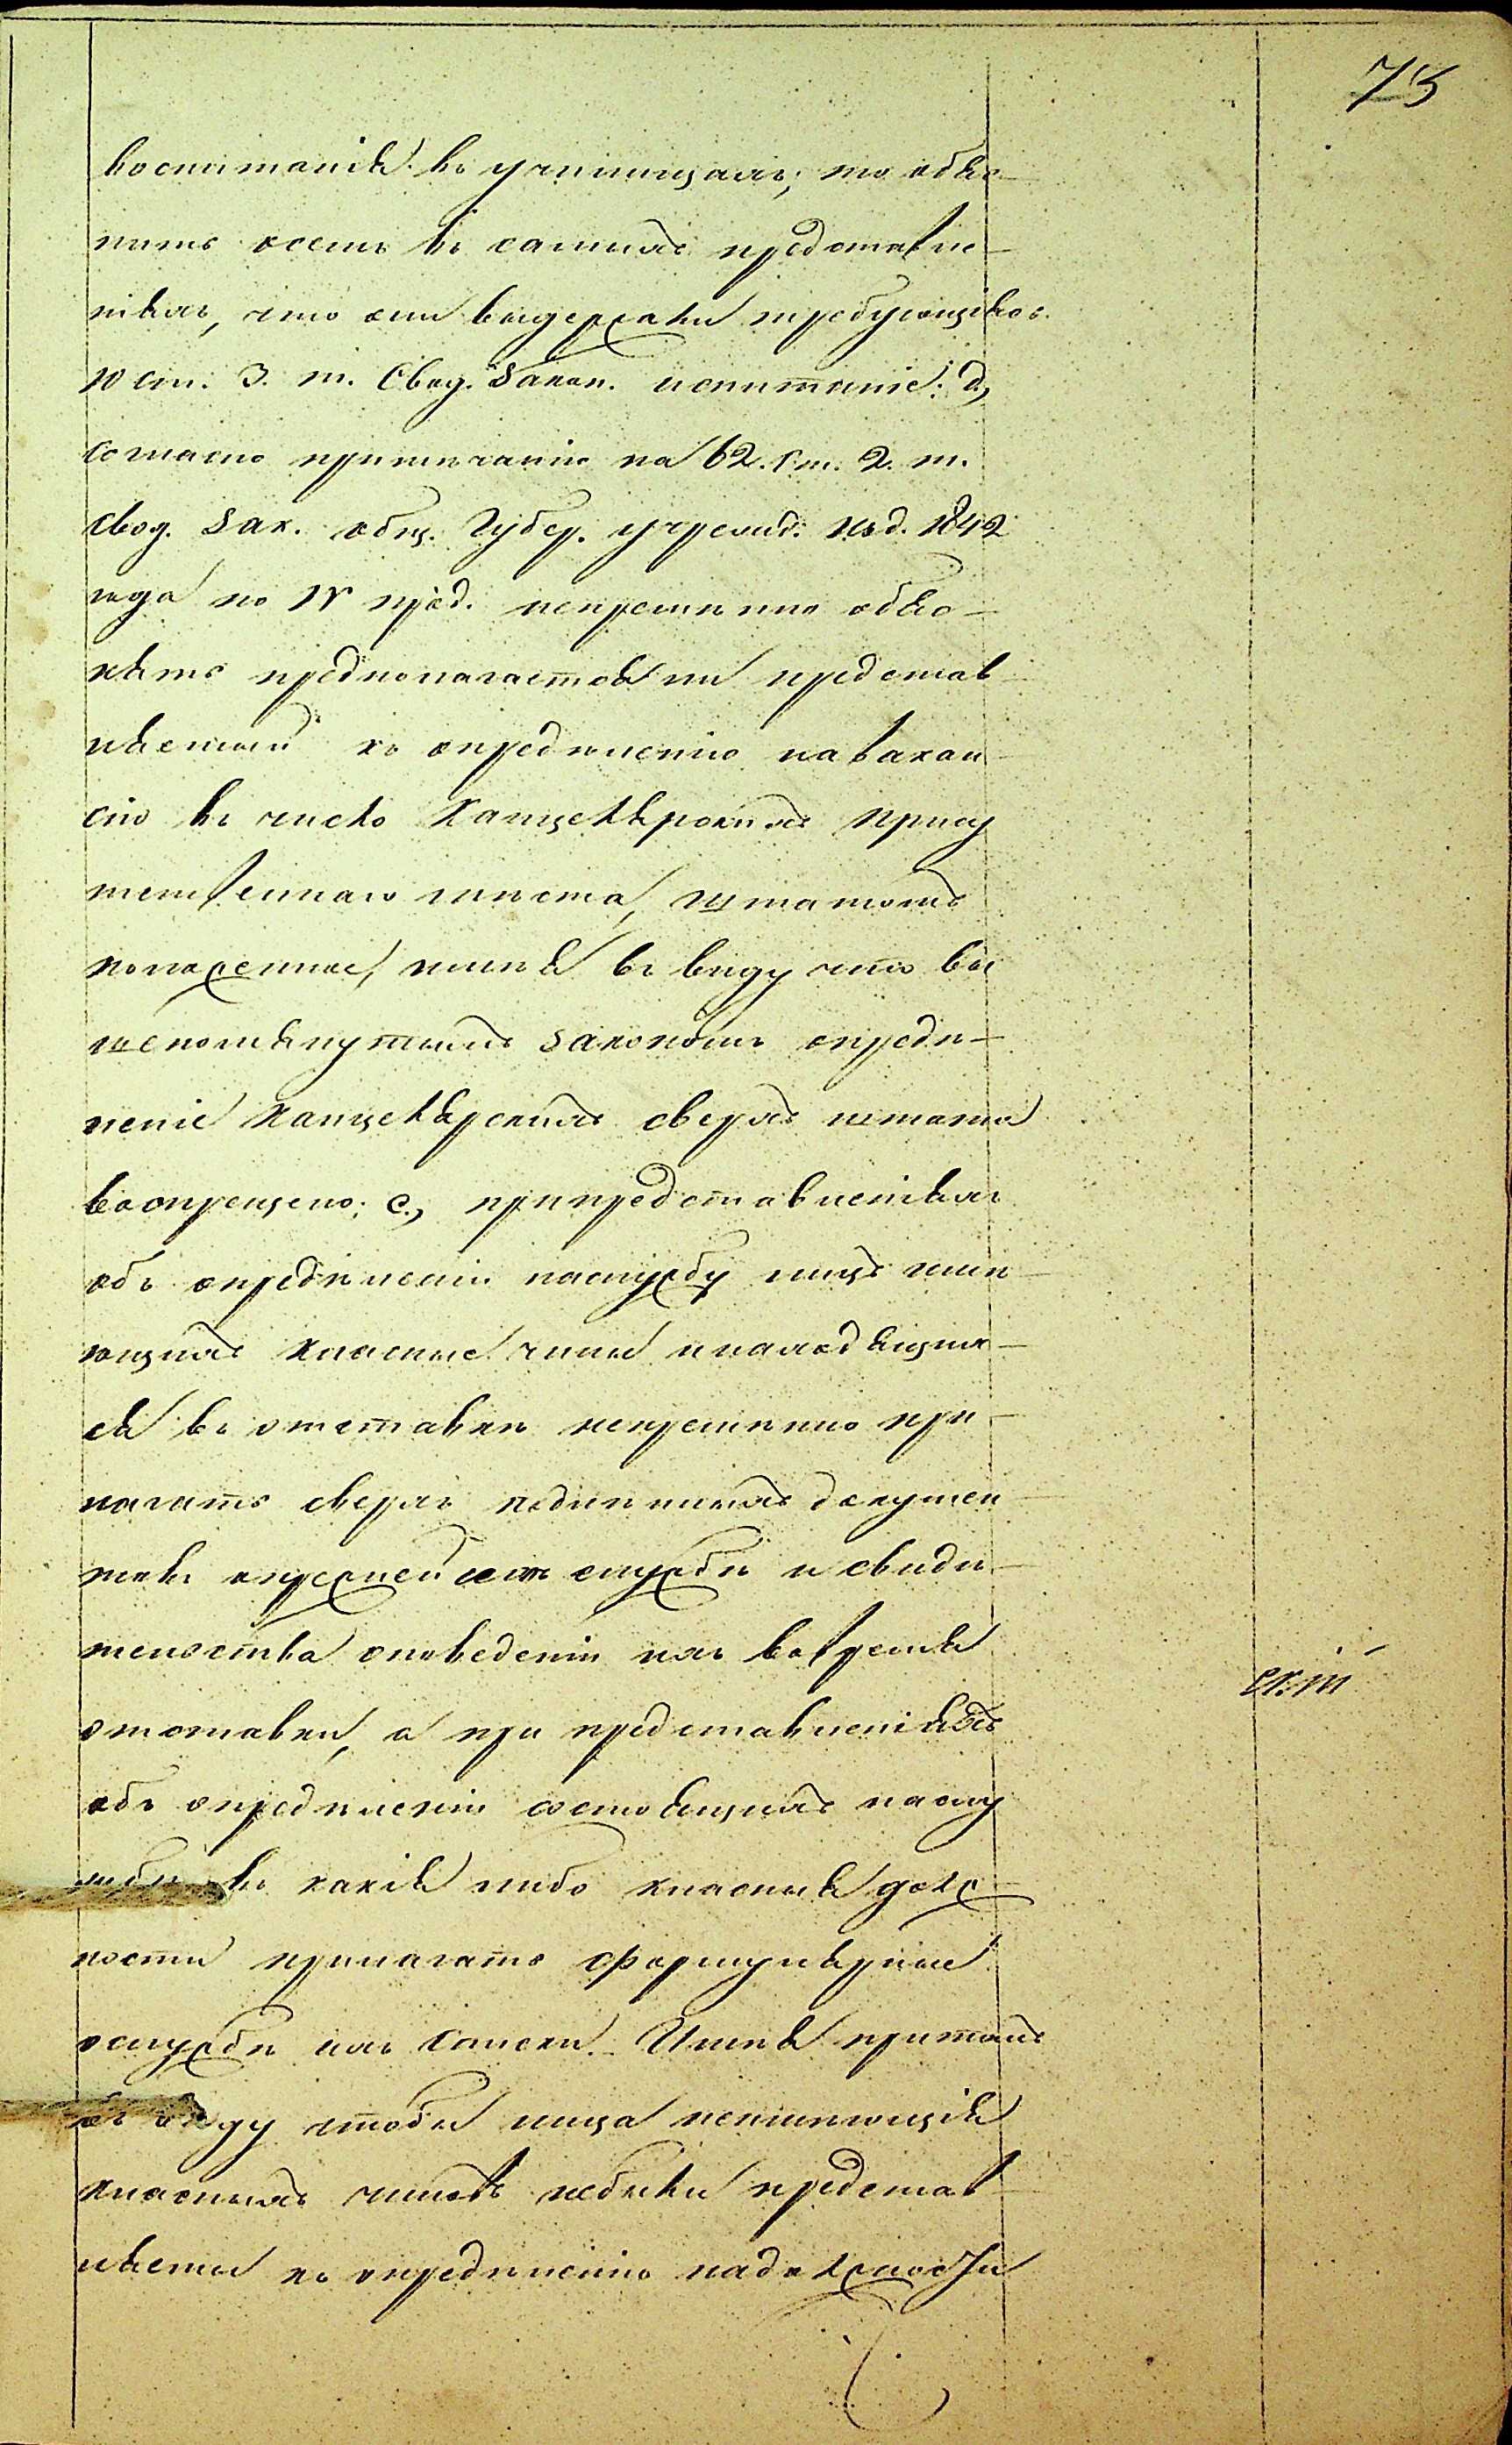 73
воспитанія въ училищахъ; то объяс-
нить о семъ въ самыхъ представле-
ніяхъ, что они выдержали требующіеся
10 ст. 3. т. Свод. Закон. испытаніе: д.,
согласно примѣчанію на 62. ст. 2. т.
Свод. Зак. общ. Губер. учрежд. изд. 1842
года по IV прод. непремѣнно объяс-
нять предполагается ли представ
ляемый къ опредѣленію на вакан-
сію въ число Канцелярскихъ присут
ственнаго мѣста, штатомъ
положенное, имѣя въ виду что вы
шепомянутымъ закономъ опредѣ-
леніе Канцелярскихъ сверхъ штата
воспрещено; е., при представленіяхъ
объ опредѣленіи на службу лицъ имѣ-
ющихъ классные чины и находящих-
ся въ отставкѣ непремѣнно при-
лагать сверхъ подлинныхъ докумен-
товъ о прежней ихъ службѣ и свидѣ-
тельства о поведеніи ихъ во время
отставки, а при представленіяхъ
объ опредѣленіи состоящихъ на слу
жбѣ въ какія либо классныя долж-
ности прилагать формулярные
о службѣ ихъ списки. Имѣя при томъ
въ виду чтобы лица неимѣющія
классныхъ чиновъ небыли представ-
ляемы къ опредѣленію на должности